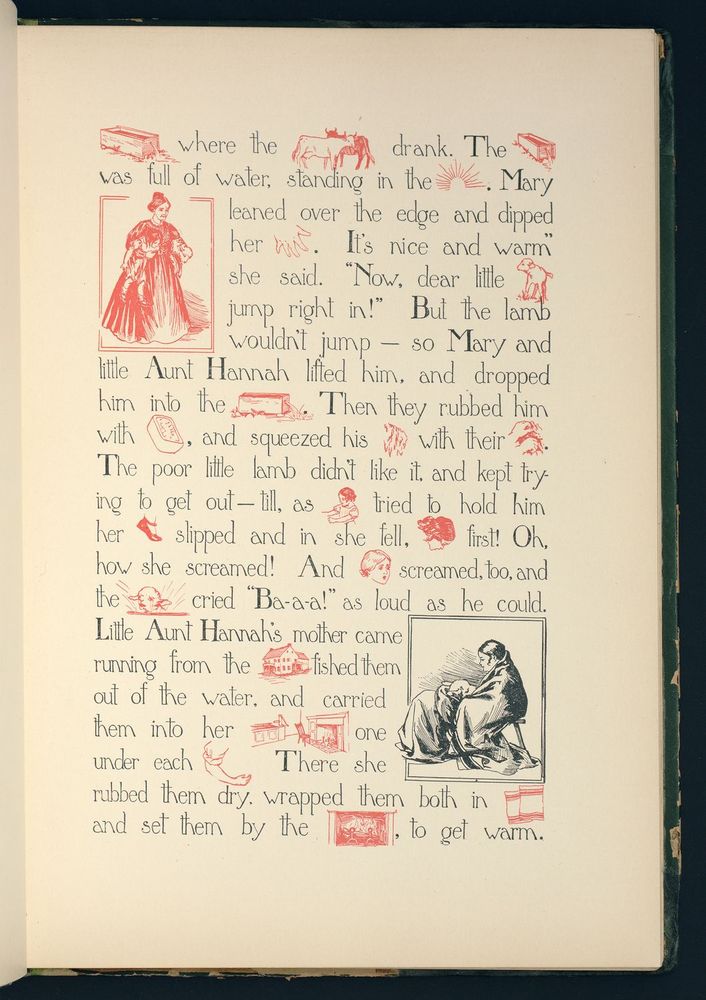 where the drank. The
was full of water, standing in the . Mary
leaned over the edge and dipped
her . It's nice and warm"
she said. "Now, dear little
jump right in!" But the lamb
wouldn't jump — so Mary and
little Aunt Hannah lifted him, and dropped
him into the . Then they rubbed him
with , and squeezed his with their .
The poor little lamb didn't like it, and kept try-
ing to get out — till, as tried to hold him
her slipped and in she fell, first! Oh,
how she screamed! And screamed, too, and
the cried "Ba-a-a!" as loud as he could.
Little Aunt Hannah's mother came
running from the fished them
out of the water, and carried
them into her one
under each There she
rubbed them dry, wrapped them both in
and set them by the , to get warm.